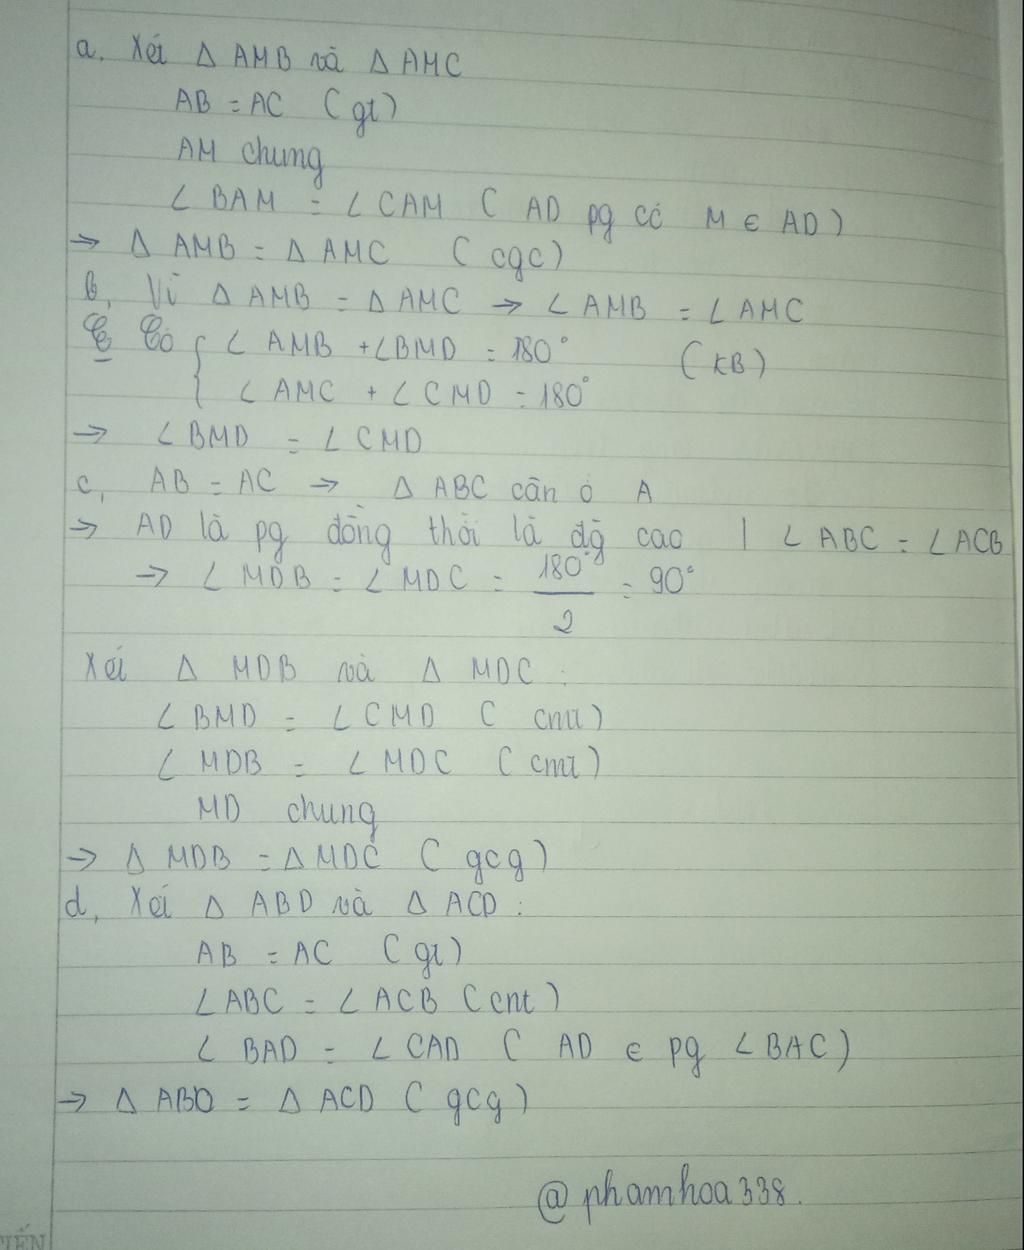 a, Xét Δ AMB và Δ AMC
AB = AC (gt)
AM chung
∠ BAM = ∠ CAM ( AD pg có M ∈ AD )
→ Δ AMB = Δ AMC ( cgc )
b, Vì Δ AMB = Δ AMC → ∠ AMB = ∠ AMC
Có { ∠ AMB + ∠BMD = 180° (KB)
∠ AMC + ∠ CMD = 180°
→ ∠ BMD = ∠ CMD
c, AB = AC → Δ ABC cân ở A
→ AD là pg đồng thời là đg cao | ∠ ABC = ∠ ACB
→ ∠ MDB = ∠ MDC = 180°/2 = 90°
Xét Δ MDB và Δ MDC :
∠ BMD = ∠ CMD ( cmt )
∠ MDB = ∠ MDC ( cmt )
MD chung
→ Δ MDB = Δ MDC ( gcg )
d, Xét Δ ABD và Δ ACD :
AB = AC ( gt )
∠ ABC = ∠ ACB ( cnt )
∠ BAD = ∠ CAD ( AD ∈ pg ∠ BAC )
→ Δ ABD = Δ ACD ( gcg )
@phamhoa338.